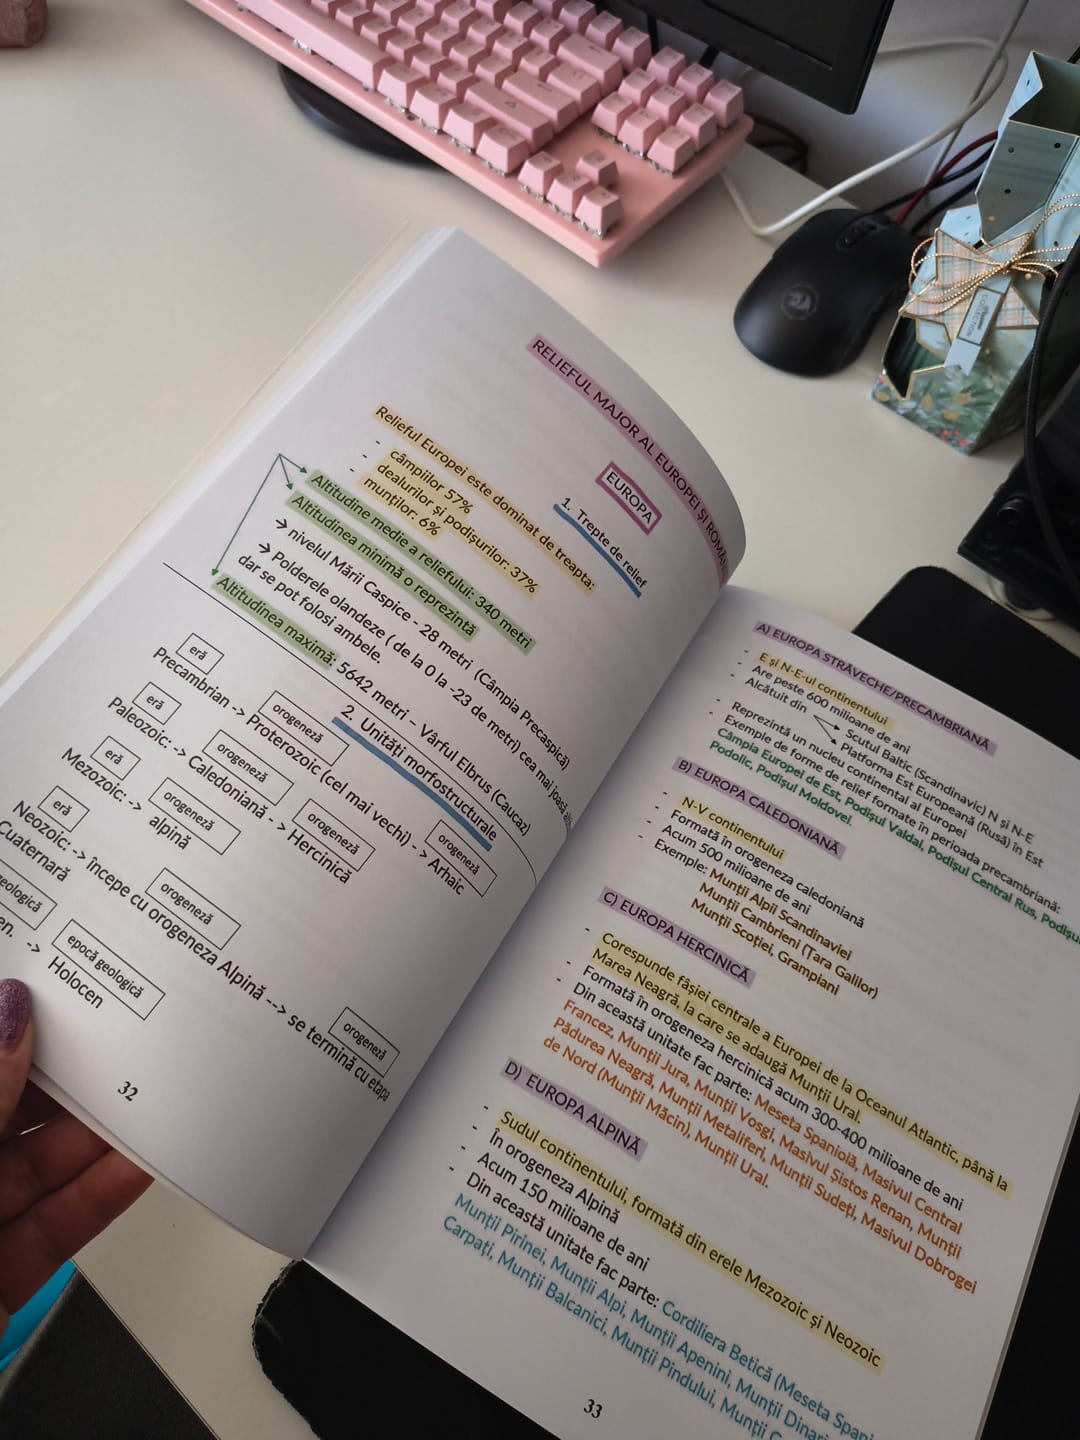 RELIEFUL MAJOR AL EUROPEI ȘI
EUROPA
1. Trepte de relief
Relieful Europei este dominat de treapta:
- câmpiilor 57%
- dealurilor și podișurilor: 37%
- munților: 6%
Altitudine medie a reliefului: 340 metri
Altitudinea minimă o reprezintă
→ nivelul Mării Caspice - 28 metri (Câmpia Precaspică)
→ Polderele olandeze ( de la 0 la -23 de metri) cea mai joasă
dar se pot folosi ambele.
Altitudinea maximă: 5642 metri – Vârful Elbrus (Caucaz)
2. Unități morfostructurale
eră
orogeneză
orogeneză
Precambrian -> Proterozoic (cel mai vechi) -> Arhaic
eră
orogeneză
orogeneză
Paleozoic: -> Caledoniană -> Hercinică
eră
orogeneză
Mezozoic: -> alpină
eră
orogeneză
orogeneză
Neozoic: -> începe cu orogeneza Alpină --> se termină cu etapa
Cuaternară
geologică
epocă geologică
en. -> Holocen
32
A) EUROPA STRĂVECHE/PRECAMBRIANĂ
- E și N-E-ul continentului
- Are peste 600 milioane de ani
- Alcătuit din
Scutul Baltic (Scandinavic) N și N-E
Platforma Est Europeană (Rusă) în Est
- Reprezintă un nucleu continental al Europei
- Exemple de forme de relief formate în perioada precambriană:
Câmpia Europei de Est, Podișul Valdai, Podișul Central Rus, Podișu
Podolic, Podișul Moldovei.
B) EUROPA CALEDONIANĂ
- N-V continentului
- Formată în orogeneza caledoniană
- Acum 500 milioane de ani
Exemple: Munții Alpii Scandinaviei
Munții Cambrieni (Țara Galilor)
Munții Scoției, Grampiani
C) EUROPA HERCINICĂ
- Corespunde fâșiei centrale a Europei de la Oceanul Atlantic, până la
Marea Neagră, la care se adaugă Munții Ural.
- Formată în orogeneza hercinică acum 300-400 milioane de ani
- Din această unitate fac parte: Meseta Spaniolă, Masivul Central
Francez, Munții Jura, Munții Vosgi, Masivul Șistos Renan, Munții
Pădurea Neagră, Munții Metaliferi, Munții Sudeți, Masivul Dobrogei
de Nord (Munții Măcin), Munții Ural.
D) EUROPA ALPINĂ
- Sudul continentului, formată din erele Mezozoic și Neozoic
- În orogeneza Alpină
- Acum 150 milioane de ani
- Din această unitate fac parte: Cordiliera Betică (Meseta Spani
Munții Pirinei, Munții Alpi, Munții Apenini, Munții Dinari
Carpați, Munții Balcanici, Munții Pindului, Munții C
33
COLLECTION